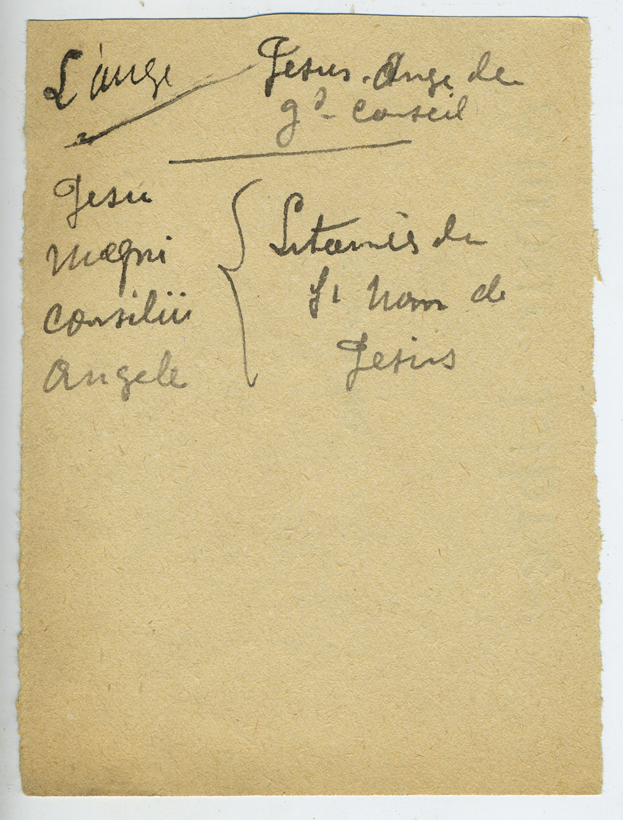 L'ange
Jésus. Ange du
gd. conseil
Jesu
magni
consilii
Angele
Litanies du
St Nom de
Jésus